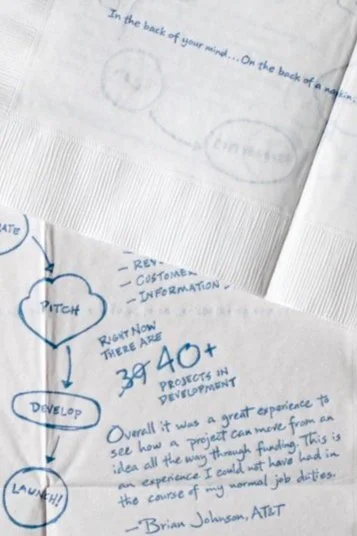 In the back of your mind...On the back of a napkin.
ATE
— REV
— CUSTOME
— INFORMATION
PITCH
RIGHT NOW
THERE ARE
39 40+
PROJECTS IN
DEVELOPMENT
DEVELOP
Overall it was a great experience to
see how a project can move from an
idea all the way through funding. This is
an experience I could not have had in
the course of my normal job duties.
LAUNCH!
—Brian Johnson, AT&T